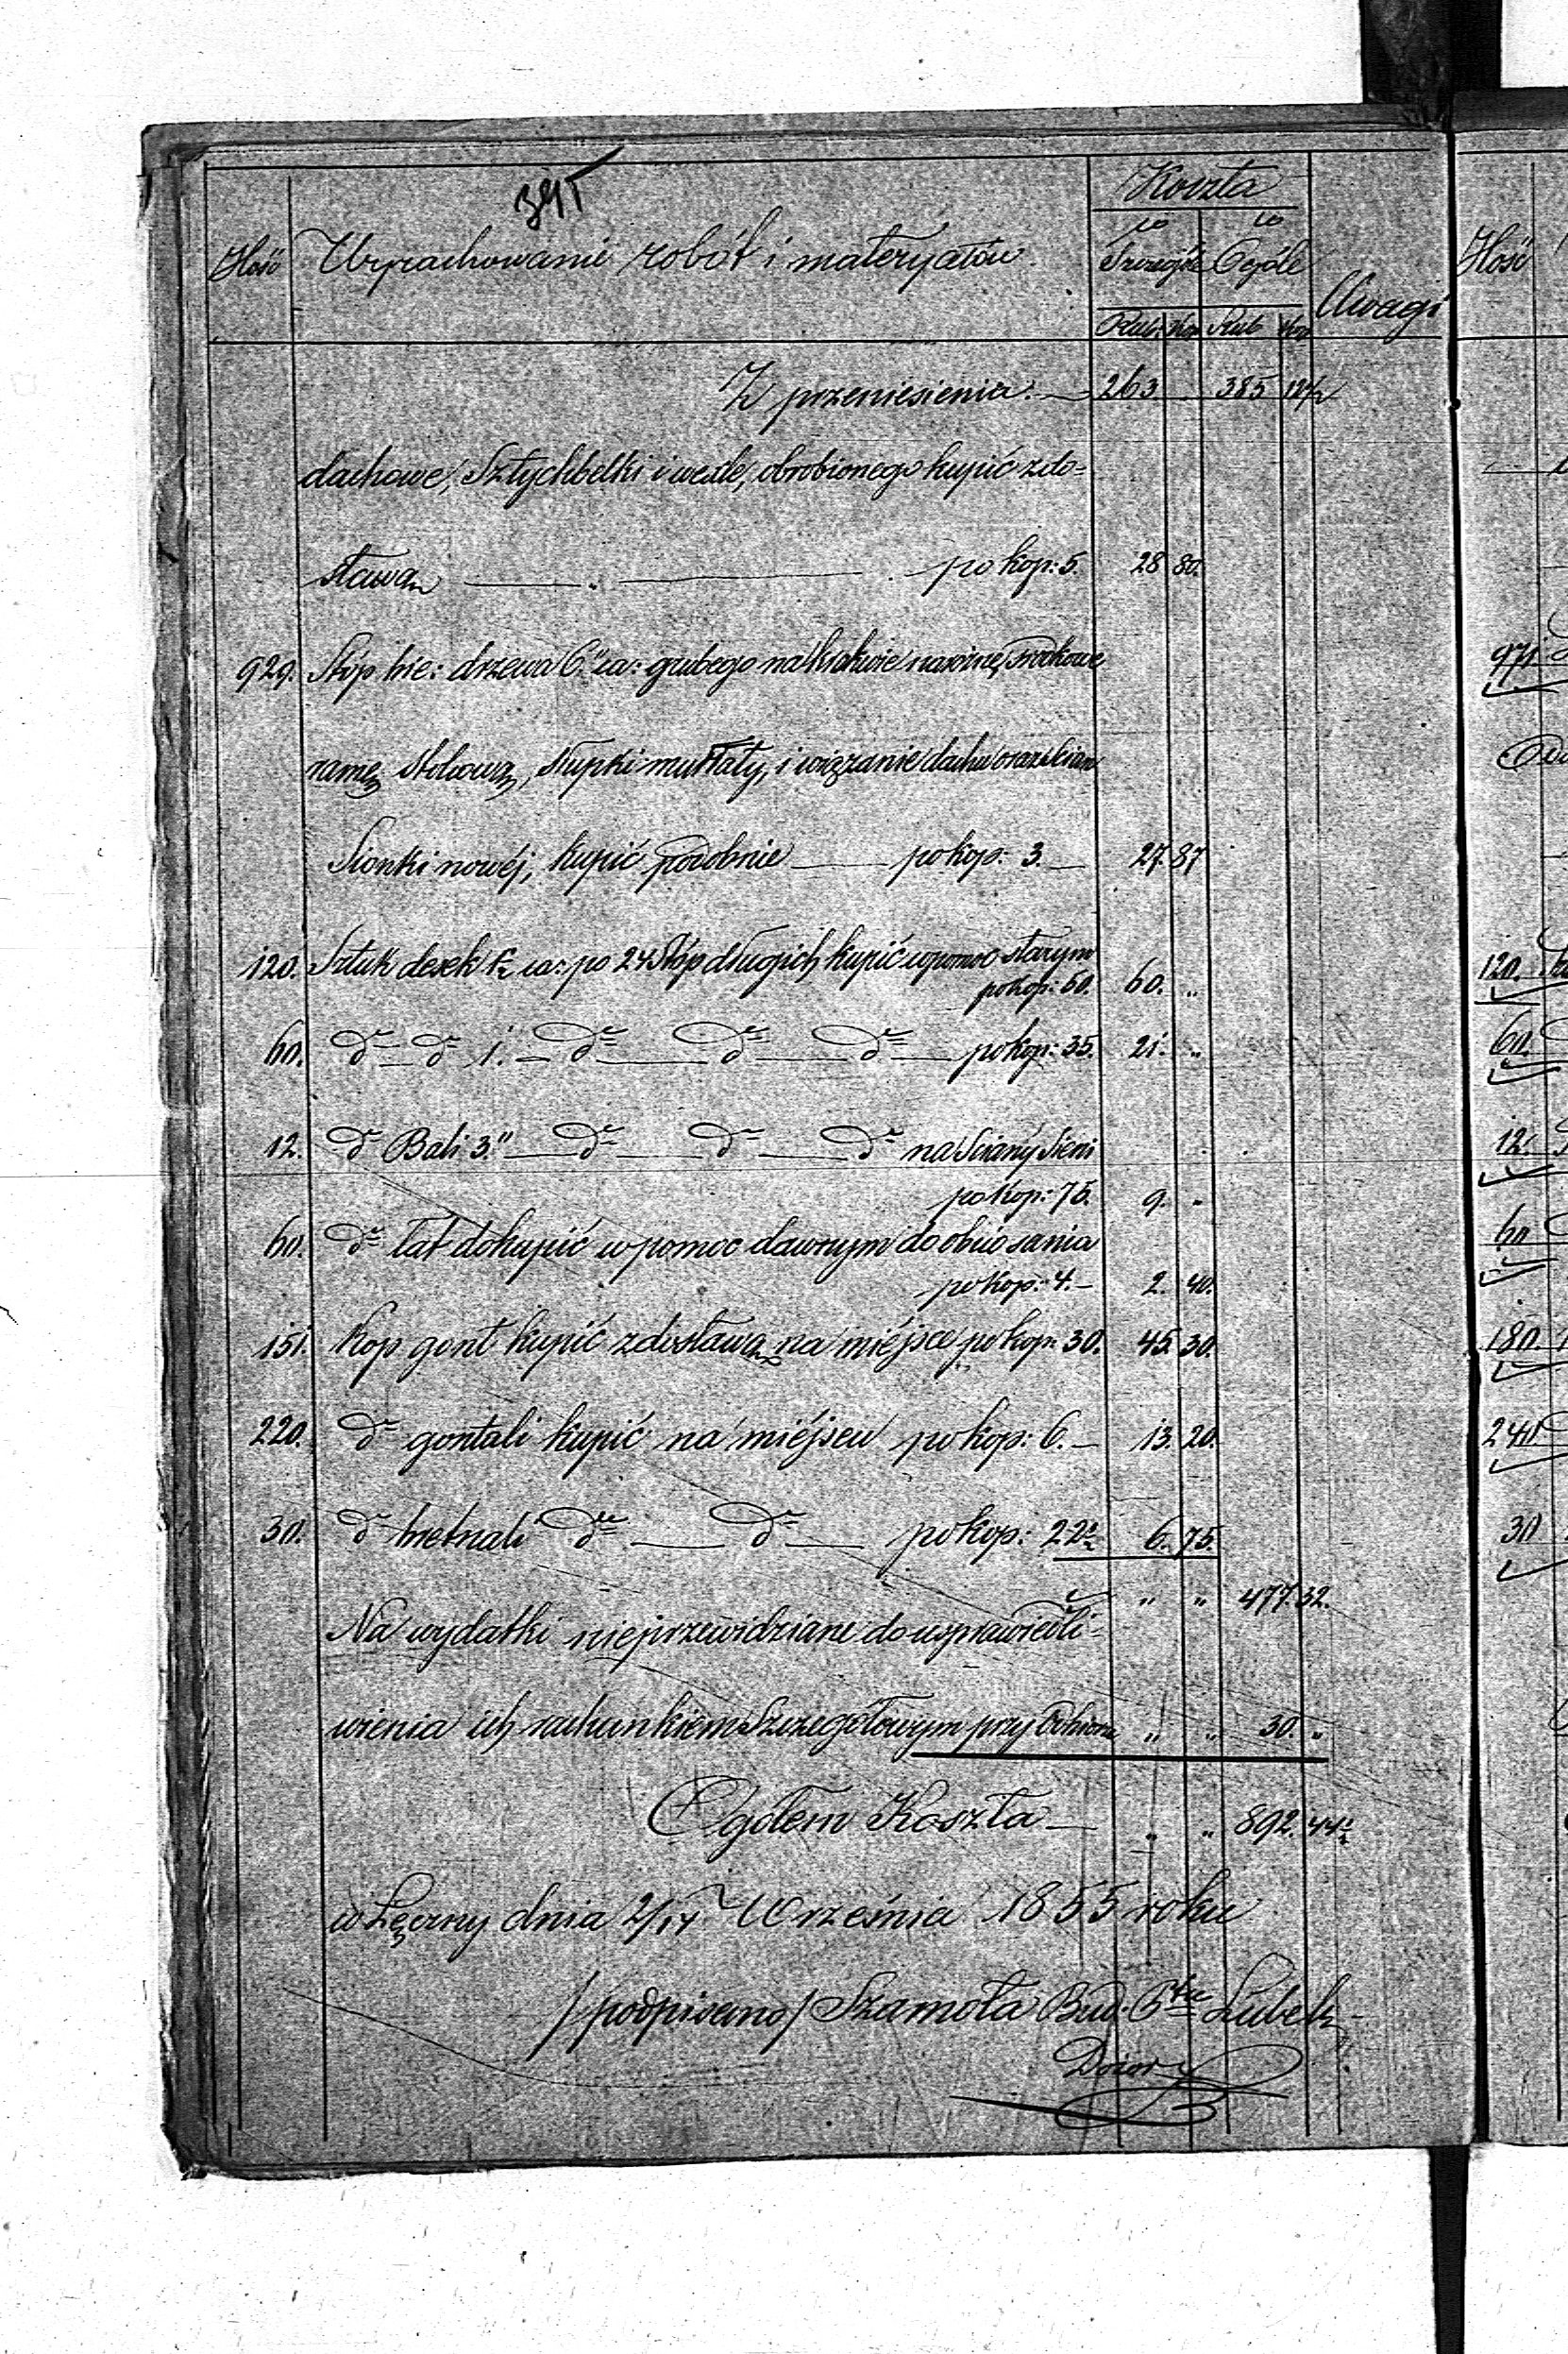 Koszta
Ilość Wyrachowanie robót i materyałów w Szczególe w Ogóle Uwagi
Rub. Kop. Rub Kop
Z przeniesienia. — 263 385 12½
dachowe, Sztychbelki i wesle, obrobionego kupić z do=
stawą — po kop: 5. 28 80.
929. Stóp bie: drzewa 6." ca: grubego na krokwie narożne, środkowe
ramę stolcową, słupki murłaty, i wiązanie dachu oraz ścian
Sionki nowéj, kupić podobnie — po kop: 3. — 27. 87
120. Sztuk desek 1½ ca: po 24 Stóp długich kupić w pomoc starym
po kop: 50. 60. "
60. d° — d° 1. — d° — d° — d° — po kop: 35. 21. "
12. d° Bali 3." — d° — d° — d° na Sciany Sieni
po kop: 75. 9. "
60. d° łat dokupić w pomoc dawnym do obicosania
po kop: 4. — 2. 40.
151. Kop gont kupić z dostawą na miéjsce po kop: 30. 45. 30.
220. d° gontali kupić na miéjscu po kop: 6. — 13. 20.
30. d° bretnali d° — d° — po kop: 22½ 6. 75.
" " 477. 32.
Na wydatki nieprzewidziane do usprawiedli=
wienia ich rachunkiem Szczegółowym przy Odbiorze " " 30. "
Ogółem Koszta — " " 892. 44½
w Łęczny dnia 2/14 Września 1855 roku
/podpisano/ Szamota Bud. Ptu Lubel:
Dozór
Ilość
971
120.
60.
12.
60
180.
240
30